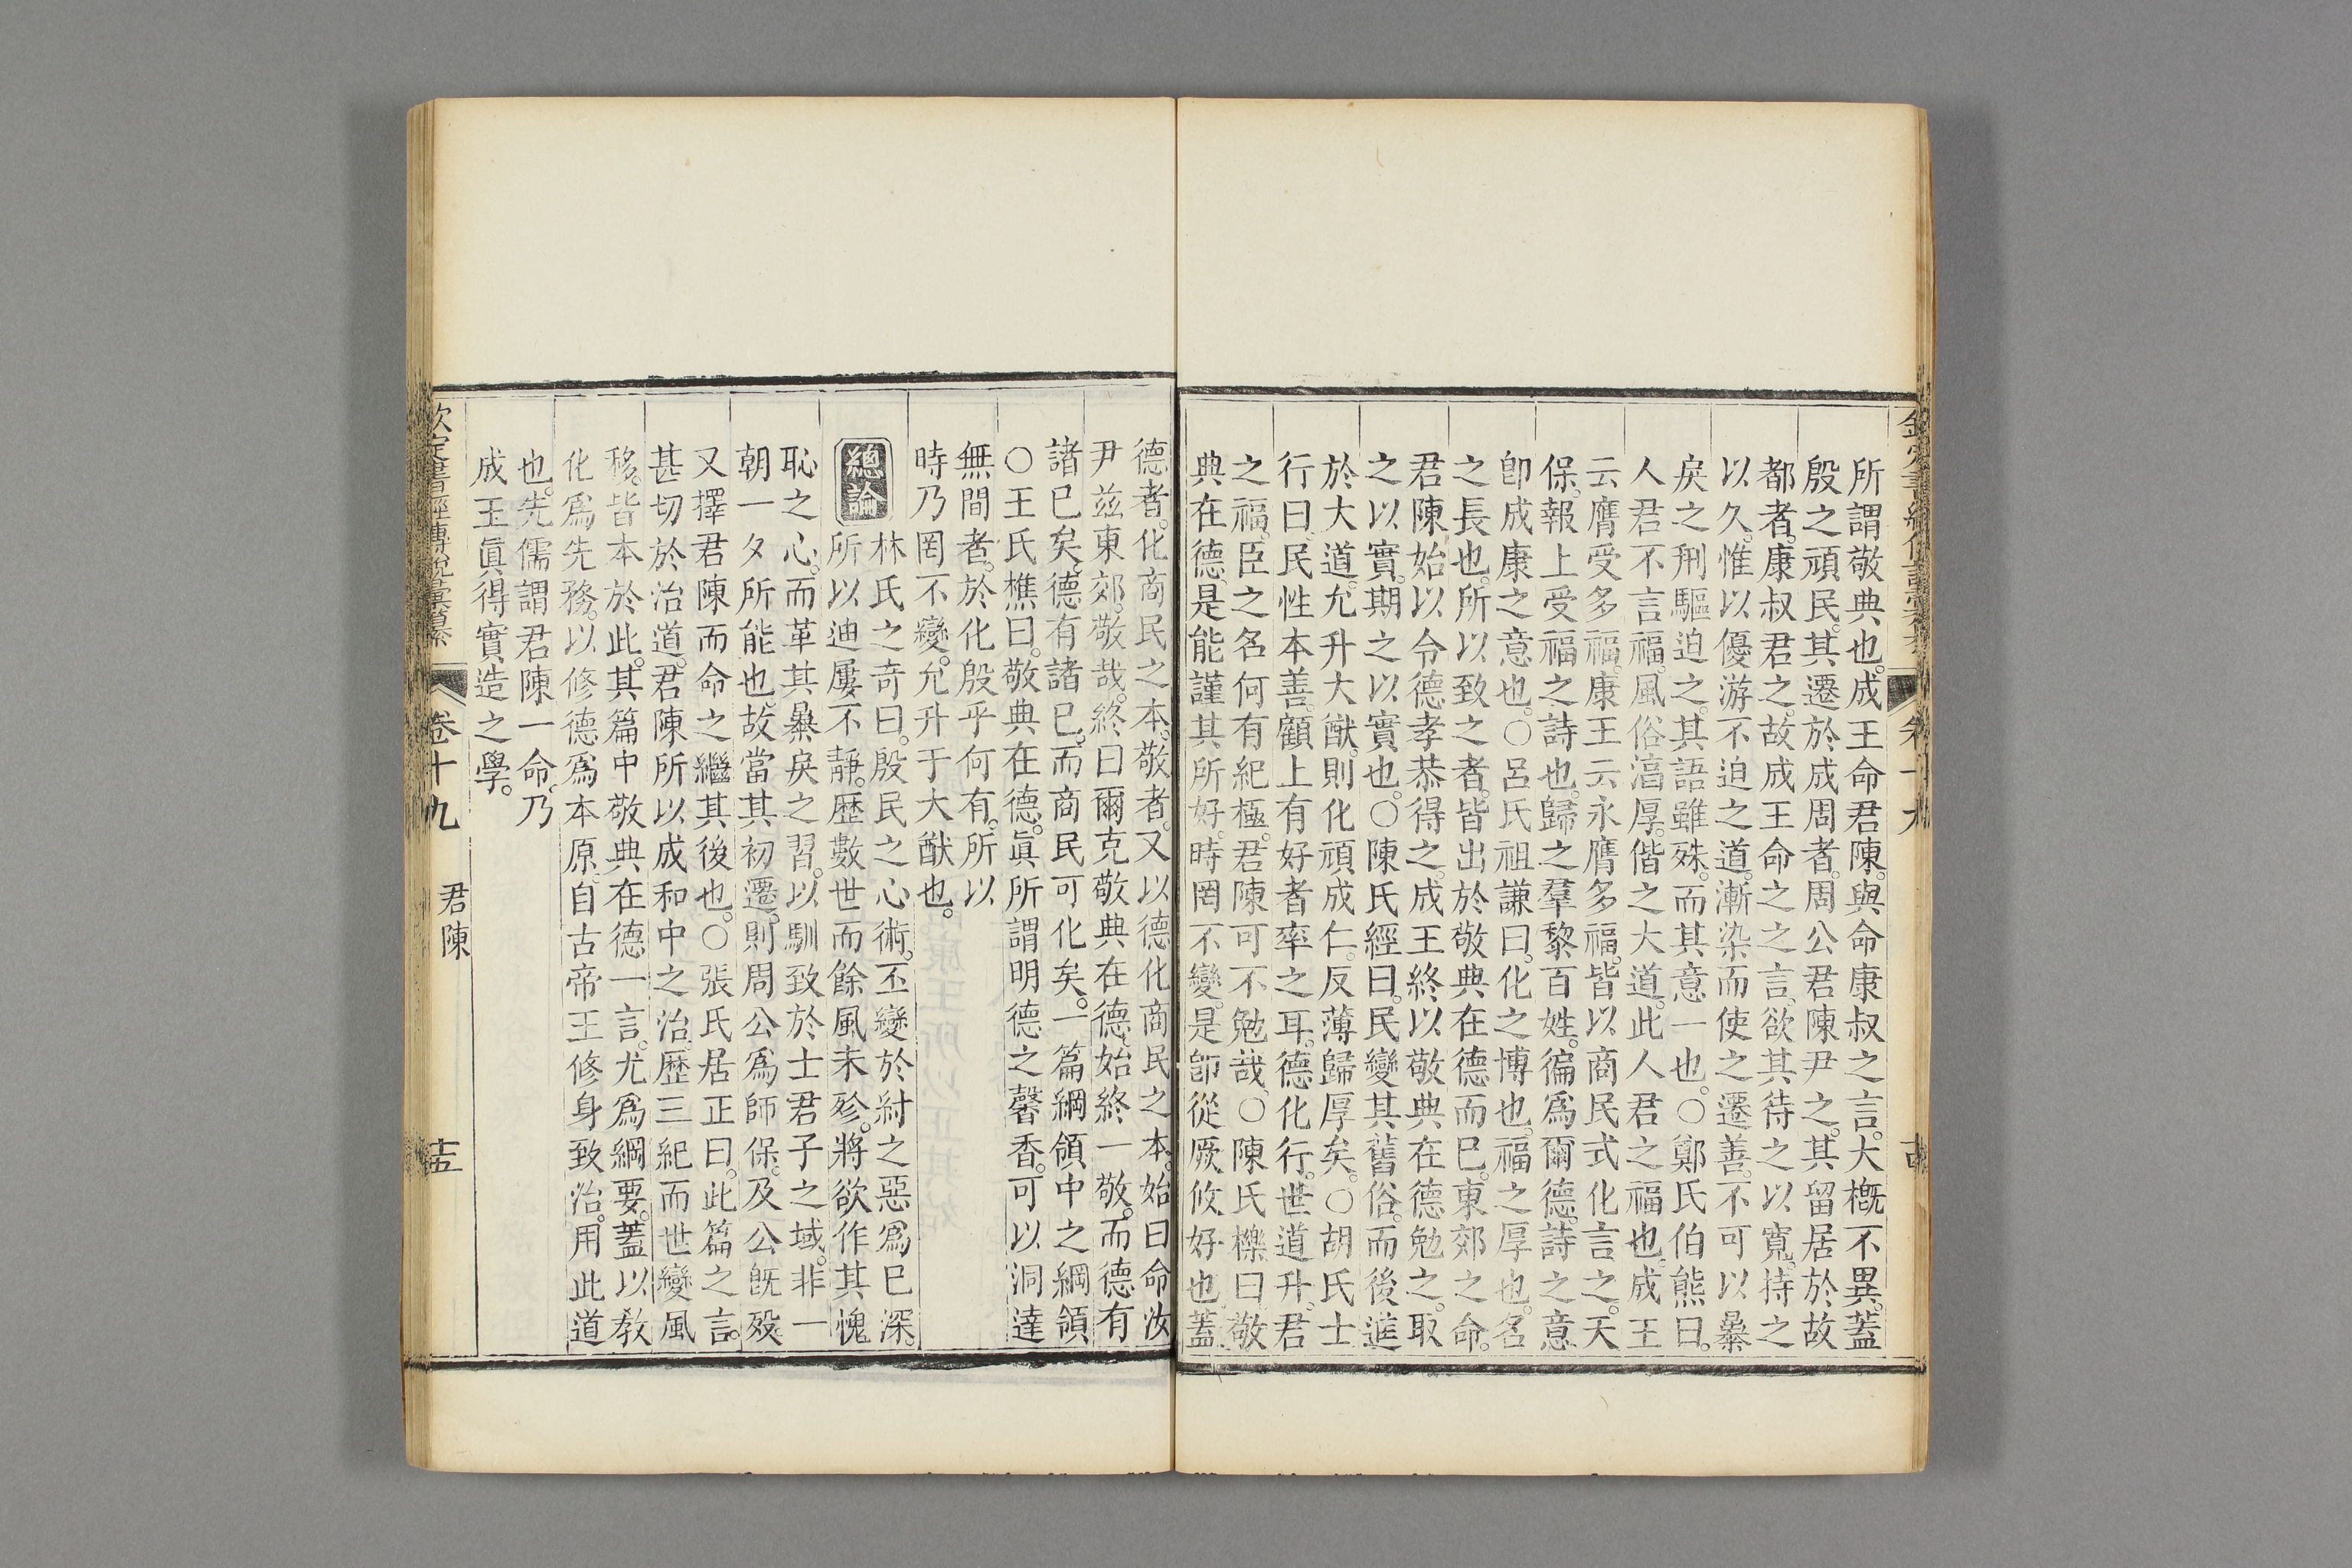 所謂敬典也。成王命君陳。與命康叔之言。大槪不異。蓋
殷之頑民。其遷於成周者。周公君陳尹之。其留居於故
都者。康叔君之。故成王命之之言。欲其待之以寬。持之
以久。惟以優游不迫之道。漸染而使之遷善。不可以㬥
戾之刑驅迫之。其語雖殊。而其意一也。○鄭氏伯熊曰。
人君不言福。風俗滀厚。偕之大道。此人君之福也。成王
云膺受多福。康王云永膺多福。皆以商民式化言之。天
保。報上受福之詩也。歸之羣黎百姓。徧爲爾德。詩之意
卽成康之意也。○呂氏祖謙曰。化之博也。福之厚也。名
之長也。所以致之者。皆出於敬典在德而已。東郊之命。
君陳始以令德孝恭得之。成王終以敬典在德勉之。取
之以實。期之以實也。○陳氏經曰。民變其舊俗。而後進
於大道。允升大猷。則化頑成仁。反薄歸厚矣。○胡氏士
行曰。民性本善。顧上有好者率之耳。德化行。世道升。君
之福。臣之名何有紀極。君陳可不勉哉。○陳氏櫟曰敬
典在德。是能謹其所好。時罔不變。是卽從厥攸好也蓋
卷十九
德者。化商民之本。敬者。又以德化商民之本。始曰命汝
尹兹東郊。敬哉。終曰爾克敬典在德。始終一敬。而德有
諸已矣。德有諸已。而商民可化矣。一篇綱領中之綱領
○王氏樵曰。敬典在德。眞所謂明德之馨香。可以洞達
無間者。於化殷乎何有。所以
時乃罔不變。允升于大猷也。
總論
林氏之奇曰。殷民之心術。丕變於紂之惡爲已深。
所以迪屢不靜。歷數世而餘風未殄。將欲作其愧
恥之心。而革其㬥戾之習。以馴致於士君子之域。非一
朝一夕所能也。故當其初遷。則周公爲師保。及公旣歿
又擇君陳而命之繼其後也。○張氏居正曰。此篇之言。
甚切於治道。君陳所以成和中之治。歷三紀而世變風
移。皆本於此。其篇中敬典在德一言。尤爲綱要。蓋以敎
化爲先務。以修德爲本原。自古帝王修身致治。用此道
也。先儒謂君陳一命。乃
成王眞得實造之學。
欽定書經傳說彙纂 卷十九 君陳 十五